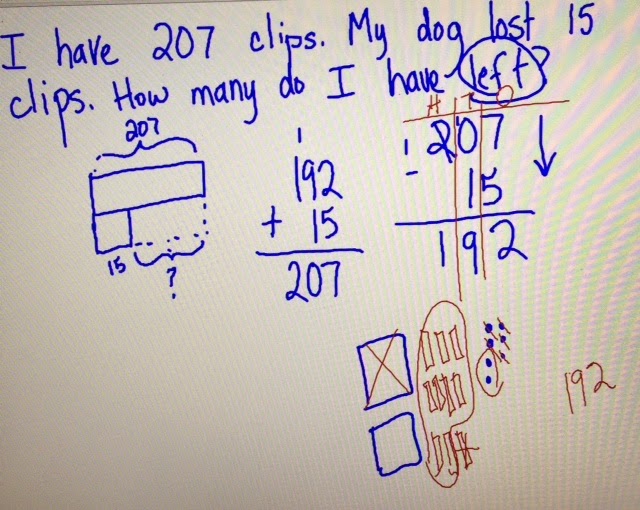 I have 207 clips. My dog lost 15
clips. How many do I have left?
207
15
?
1
192
+ 15
207
H T O
1
207
- 15
192
192